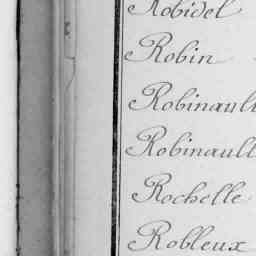 Robidel
Robin
Robinault
Robinault
Rochelle
Robleux